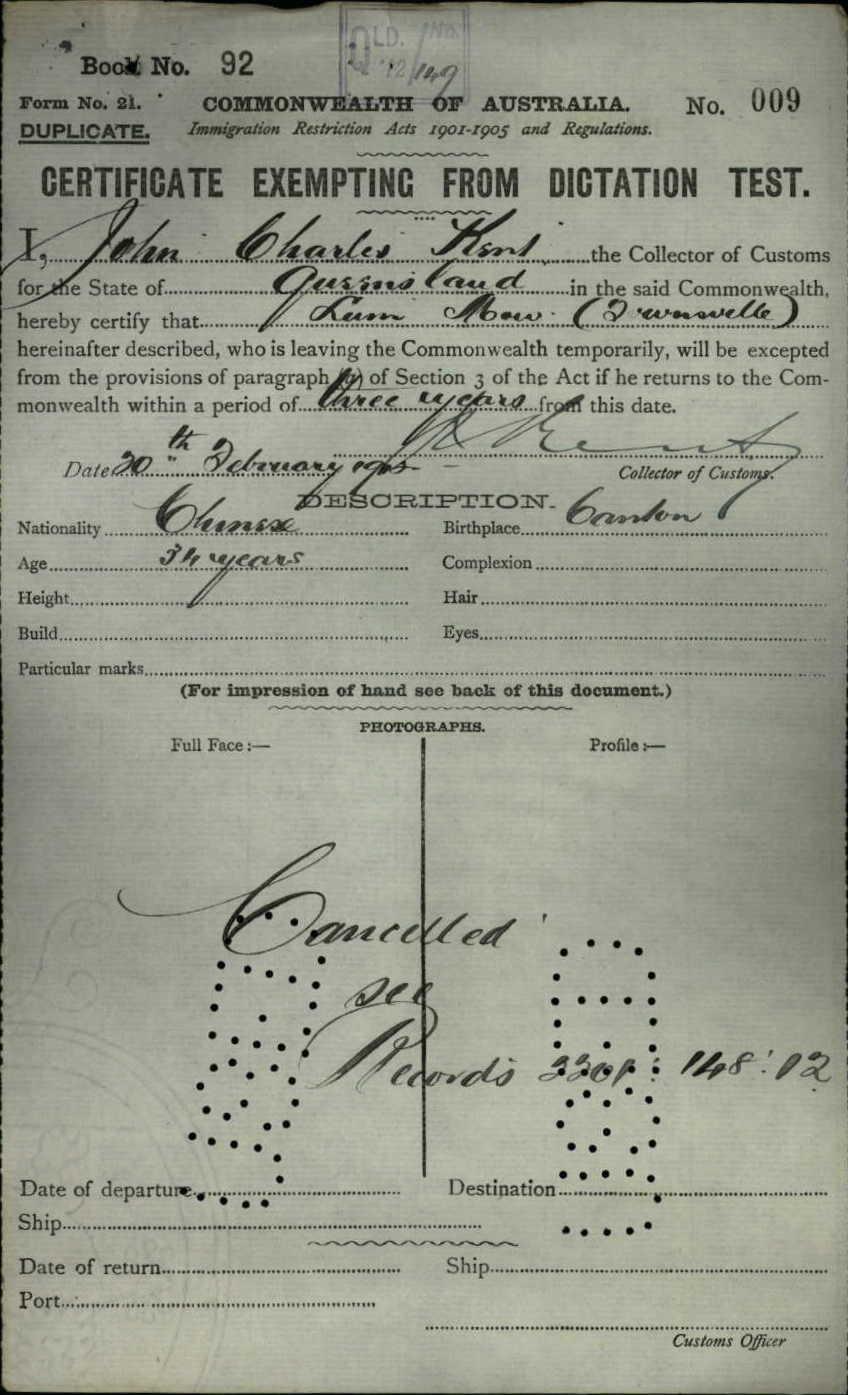 QLD. No.
12/149
Book No. 92
Form No. 21. COMMONWEALTH OF AUSTRALIA. No. 009
DUPLICATE. Immigration Restriction Acts 1901-1905 and Regulations.
CERTIFICATE EXEMPTING FROM DICTATION TEST.
I, John Charles Kent, the Collector of Customs
for the State of Queensland in the said Commonwealth,
hereby certify that Lum Mow (Townsville)
hereinafter described, who is leaving the Commonwealth temporarily, will be excepted
from the provisions of paragraph of Section 3 of the Act if he returns to the Com-
monwealth within a period of three years from this date.
Kent
Date 20th February Collector of Customs.
DESCRIPTION.
Nationality Chinese Birthplace Canton
Age 34 years Complexion
Height Hair
Build Eyes
Particular marks
(For impression of hand see back of this document.)
PHOTOGRAPHS.
Full Face:— Profile:—
Cancelled
see
Records 148.12
Date of departure Destination
Ship
Date of return Ship
Port
Customs Officer